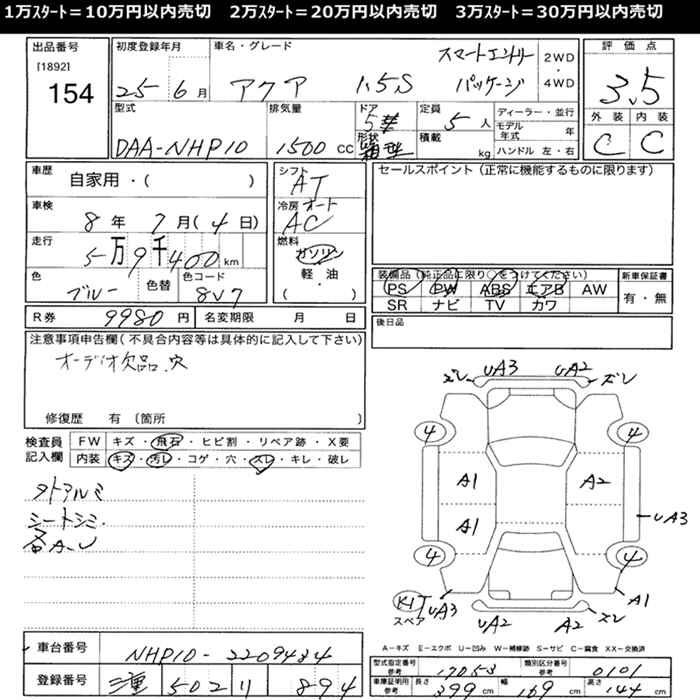 1万ｽﾀｰﾄ＝10万円以内売切　2万ｽﾀｰﾄ＝20万円以内売切　3万ｽﾀｰﾄ＝30万円以内売切
出品番号 初度登録年月 車名・グレード 評価点
[1892] スマートエントリー 2WD
154 25 6月 アクア 1.5S パッケージ ・ 4WD 3.5
型式 排気量 ドア 定員 ディーラー・並行 外装 内装
5 5人 モデル年式 年
DAA-NHP10 1500cc 形状 積載 kg ハンドル 左・右 C C
車歴 自家用・( ) シフト AT セールスポイント(正常に機能するものに限ります)
車検 8年 7月(4日) 冷房 オート AC
走行 5万9千400km 燃料 ガソリン
色 ブルー 色替 色コード 8V7 軽・油 ・( )
装備品(純正品に限り○をつけてください) 新車保証書
PS PW ABS エアB AW 有・無
SR ナビ TV カワ
R券 9980円 名変期限 月 日 後日品
注意事項申告欄(不具合内容等は具体的に記入して下さい)
オーディオ欠品.穴
修復歴 有 (箇所 )
検査員記入欄 FW キズ・飛石・ヒビ割・リペア跡・X要
内装 キズ・汚レ・コゲ・穴・スレ・キレ・破レ
シートシミ.
各A-U
ズレ UA3 UA2 ズレ
4 4
A1 A2
A1 UA3
4 4
スペア UA3 UA2 A2 ズレ A1
A－キズ E－エクボ U－凹み W－補修跡 S－サビ C－腐食 XX－交換済
車台番号 NHP10-2209434
型式指定番号 参考 17053 類別区分番号 参考 0101
登録番号 三重 502 リ 894
車庫証明用 参考 長さ 399cm 幅 169cm 高さ 144cm